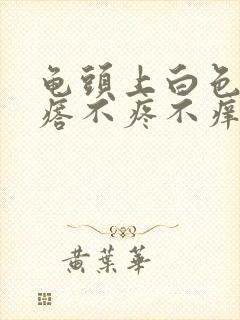 龟頭上白色
痞不疼不痒
黄葉華